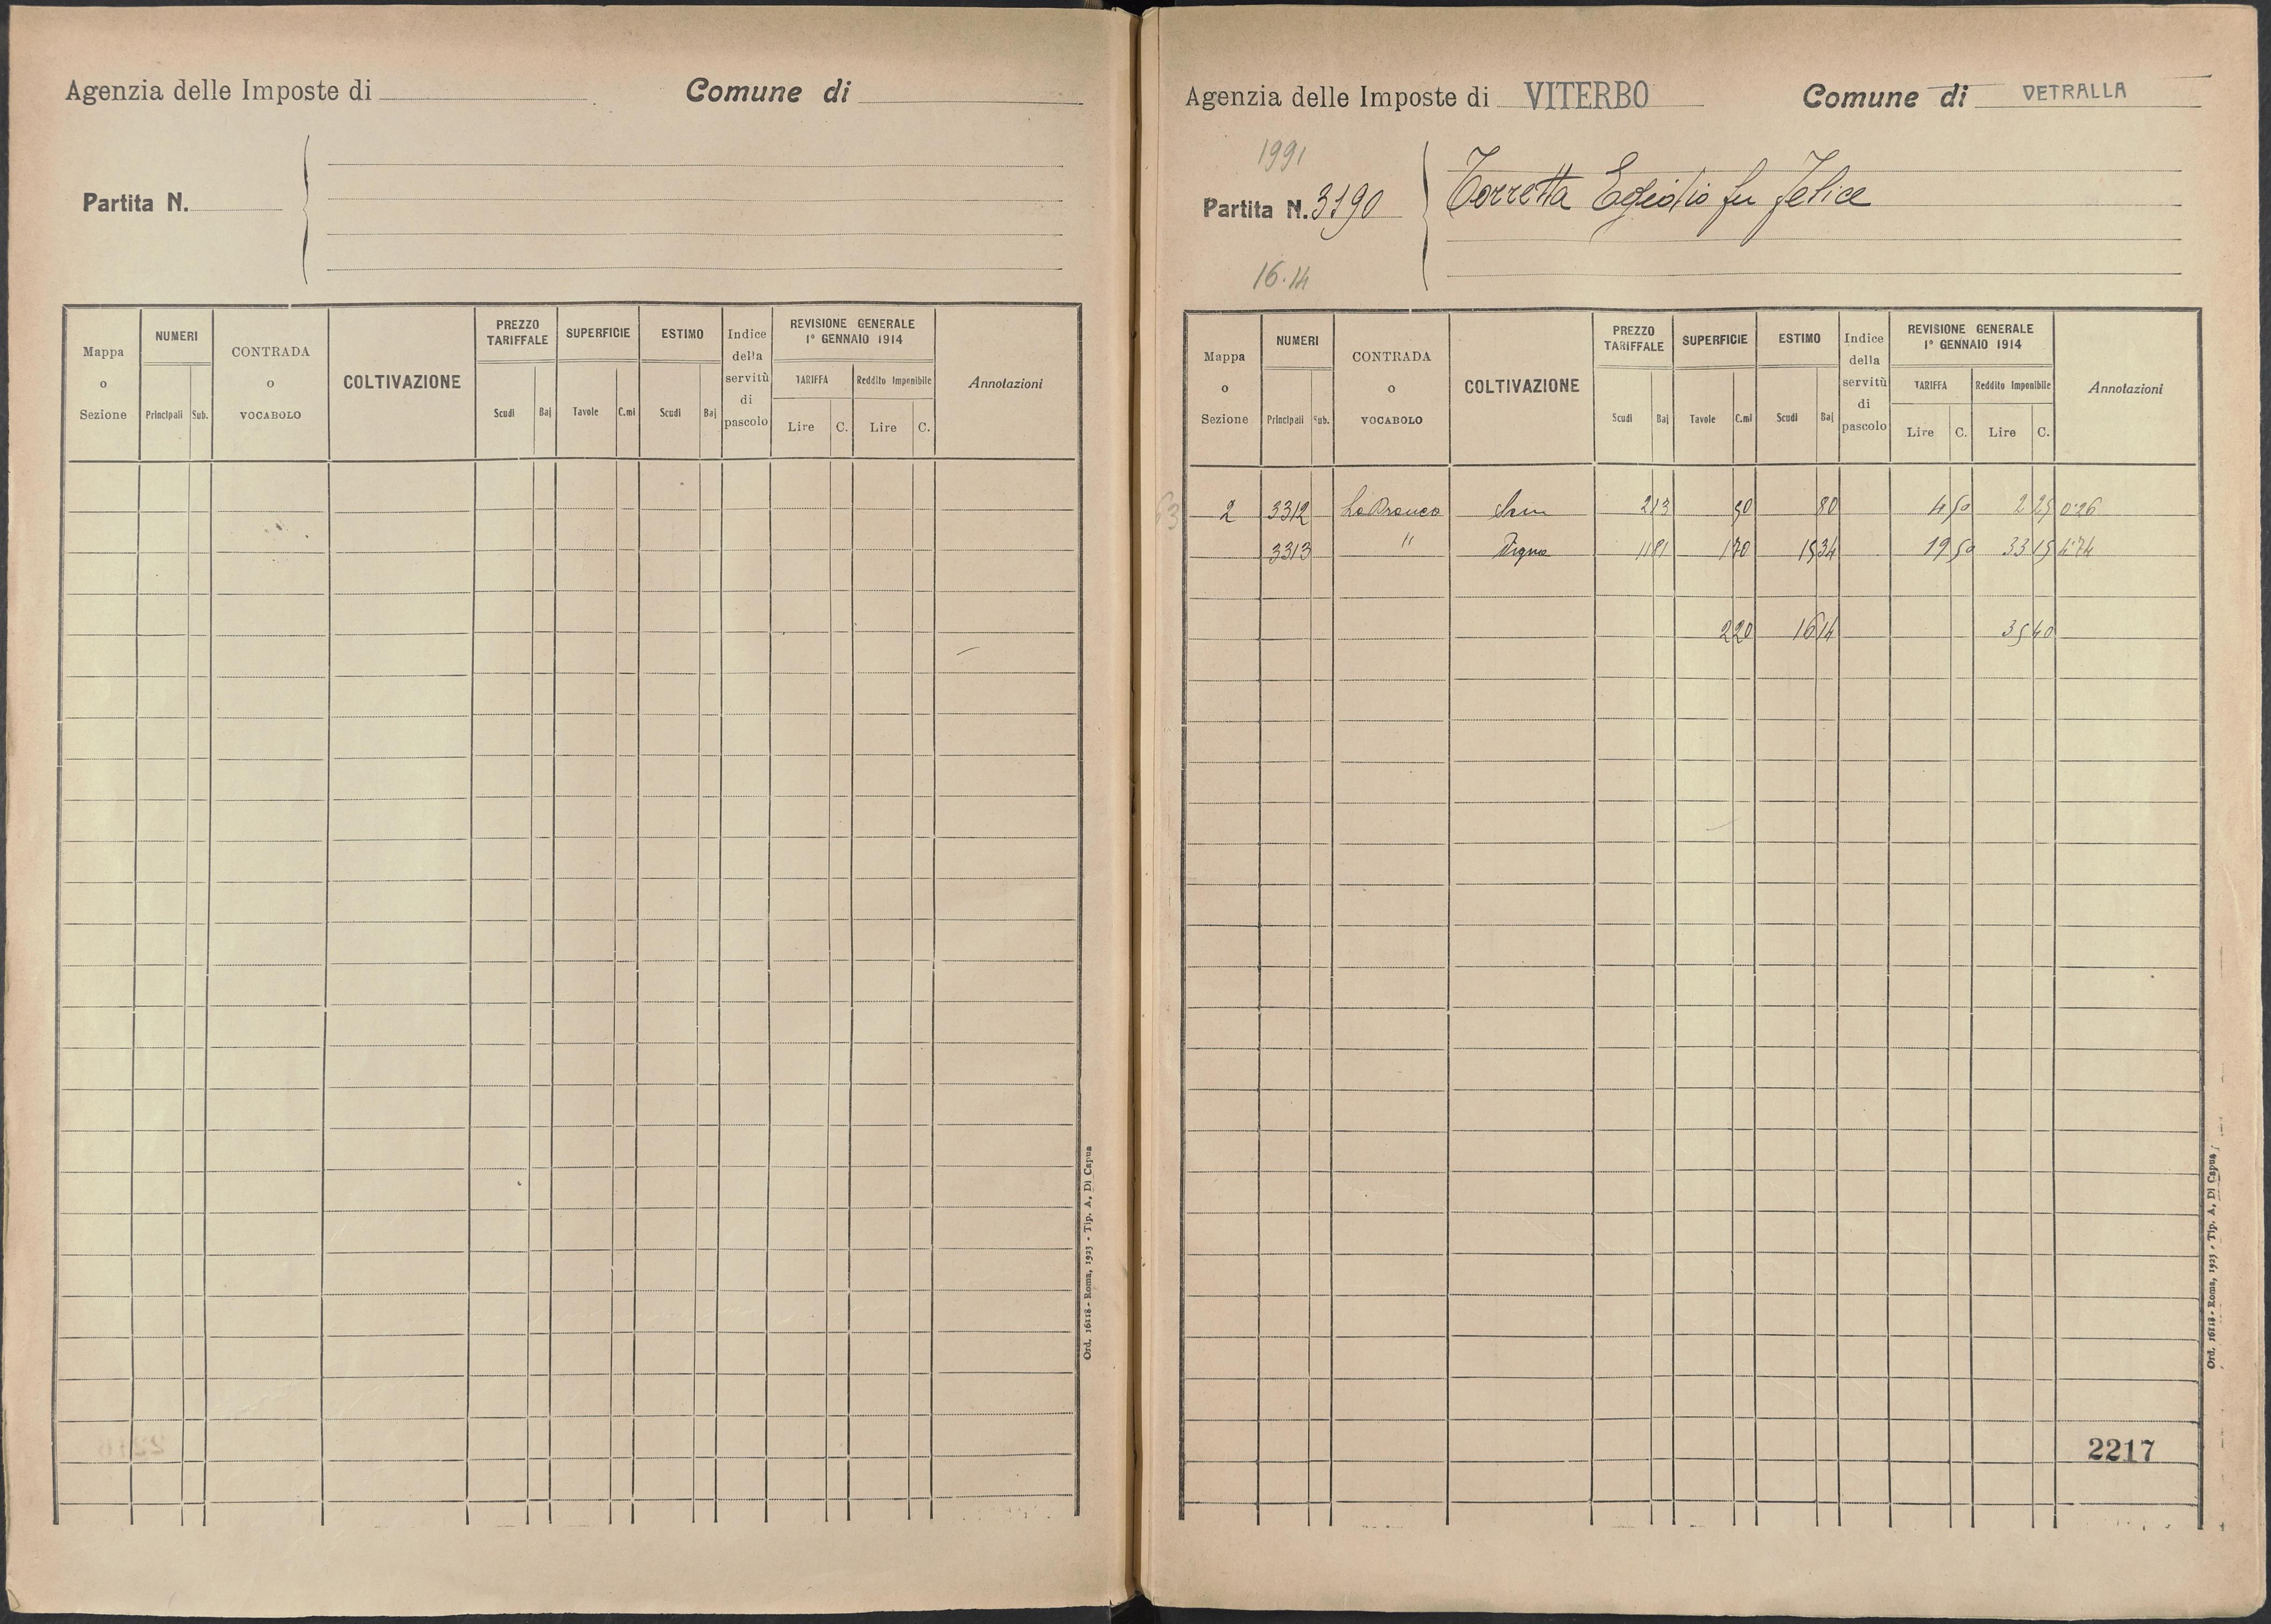 Agenzia delle Imposte di
Comune di
Partita N.
Mappa o Sezione
NUMERI
Principali Sub.
CONTRADA o VOCABOLO
COLTIVAZIONE
PREZZO TARIFFALE
Scudi Baj
SUPERFICIE
Tavole C.mi
ESTIMO
Scudi Baj
Indice della servitù di pascolo
REVISIONE GENERALE
1° GENNAIO 1914
TARIFFA
Lire C.
Reddito Imponibile
Lire C.
Annotazioni
Ord. 16118 - Roma, 1923 - Tip. A. Di Capua
Agenzia delle Imposte di VITERBO
Comune di VETRALLA
1991
Partita N. 3190
Torretta Egidio fu Felice
16.14
Mappa o Sezione
NUMERI
Principali Sub.
CONTRADA o VOCABOLO
COLTIVAZIONE
PREZZO TARIFFALE
Scudi Baj
SUPERFICIE
Tavole C.mi
ESTIMO
Scudi Baj
Indice della servitù di pascolo
REVISIONE GENERALE
1° GENNAIO 1914
TARIFFA
Lire C.
Reddito Imponibile
Lire C.
Annotazioni
2 3312 2 13 50 80 4 50 2 25 0.26
3313 " Vigna 1 70 15 34 19 50 33 15 4.74
2 20 16 14 35 40
2217
Ord. 16118 - Roma, 1923 - Tip. A. Di Capua